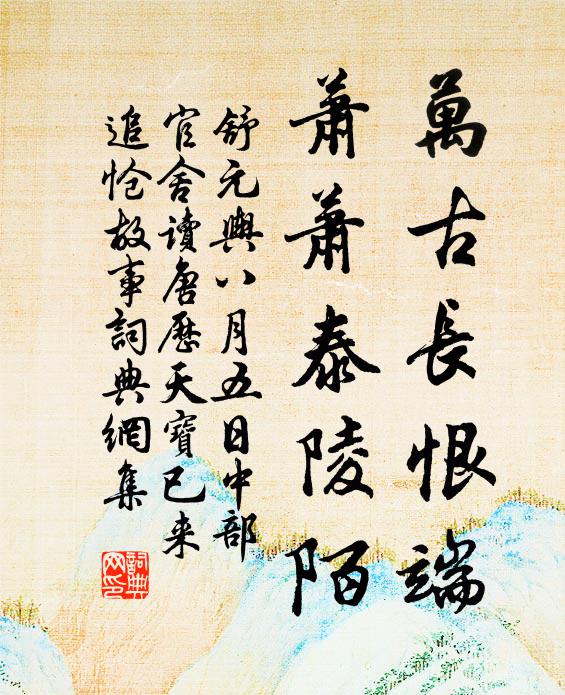 萬古長恨端
蕭蕭泰陵陌
舒元輿八月五日中部
官舍讀唐歷天寶已来
追愴故事詞典網集
詞典网印